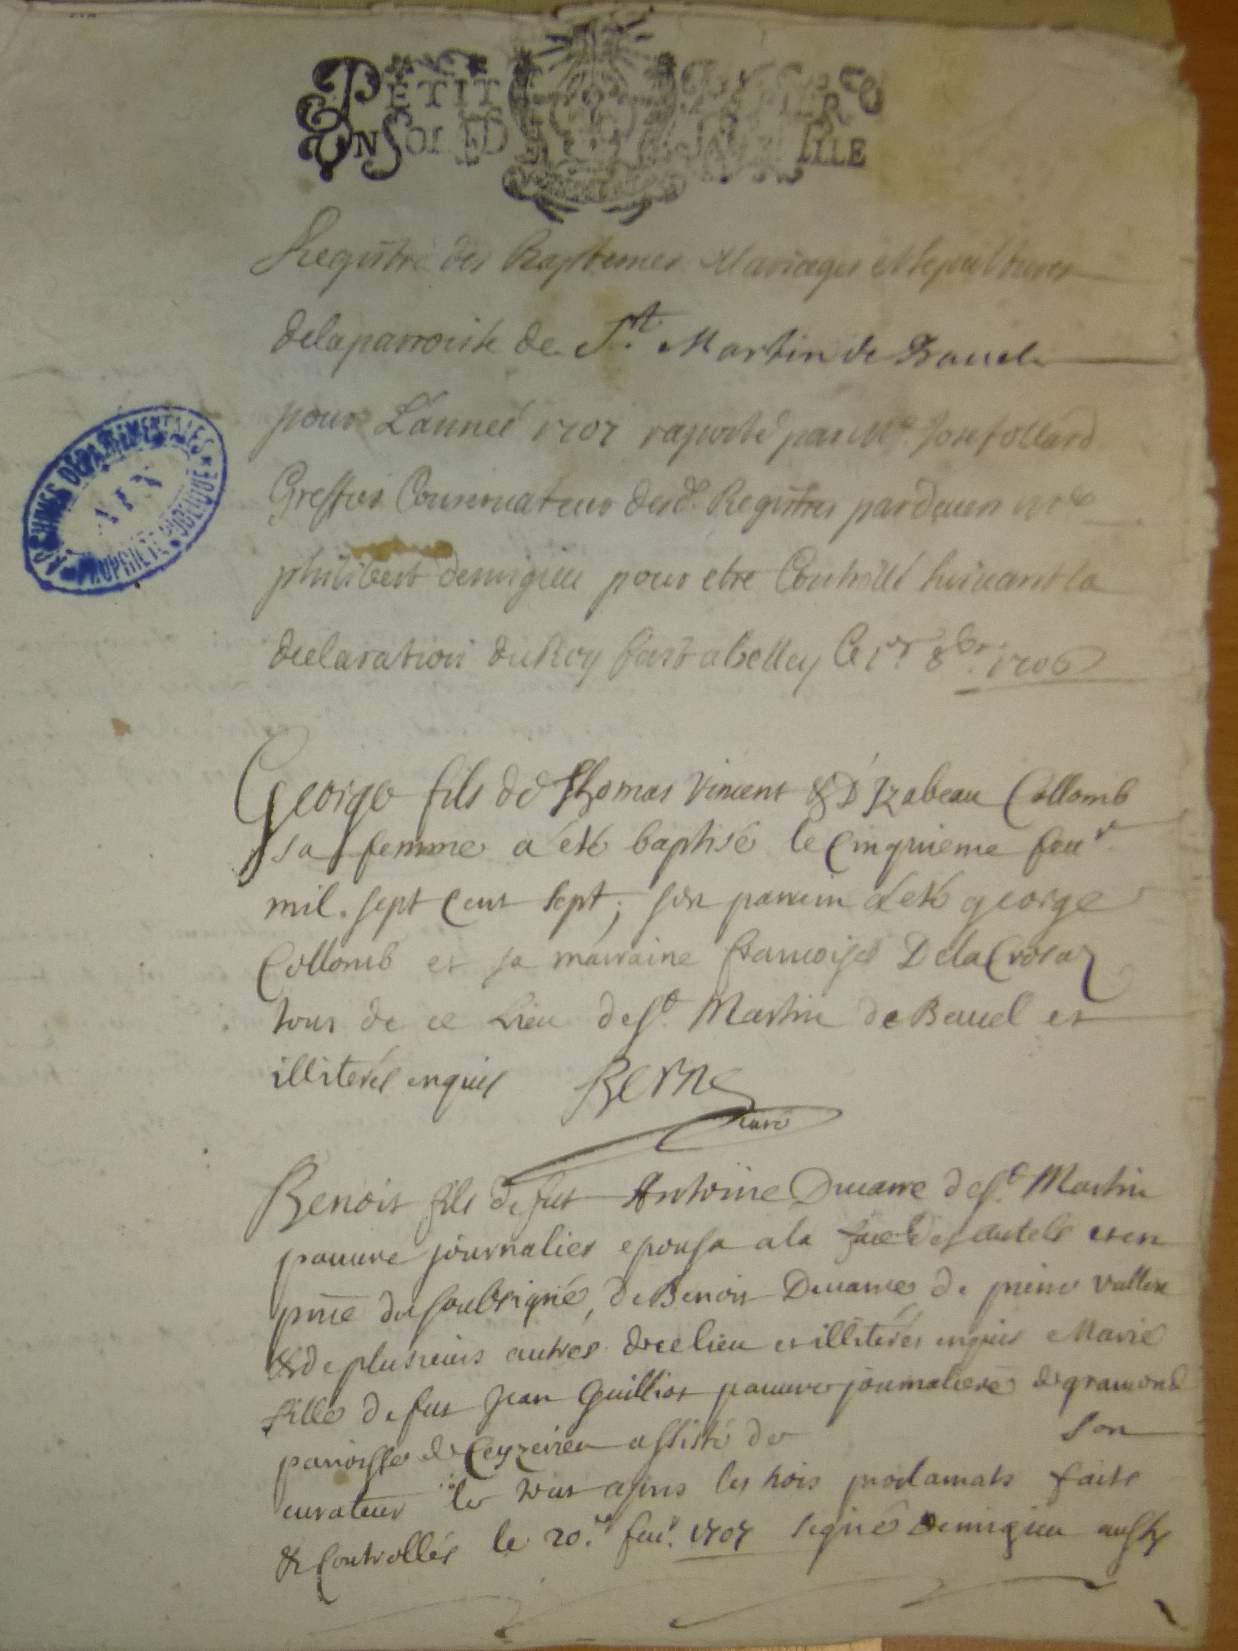 PETIT PAPIER
UN SOL LED LA FEUILLE
Registre des Baptemes Mariages et sepultures
delaparroisse de St. Martin de Bauel
pour L'année 1707 raporté par Mre
Greffier Conservateur desd. Registres pardevers
philibert demigieu pour etre Controllé suivant la
declaration du Roy fait a belley le 1er 8bre 1706
ARCHIVES DÉPARTEMENTALES
AIN
PROPRIÉTÉ PUBLIQUE
George fils de Thomas Vincent & D'Izabeau Collomb
sa femme a été baptisé le cinquieme feur.
mil. sept cent sept; son parrein a eté george
Collomb et sa marraine francoise Dela Crosaz
tous de ce Lieu de St. Martin de Bauel et
illiterés enquis Berne
curé
Benoit fils de fut Antoine Ducarre de St. Martin
pauure journalier epousa a la face des autels et en
pnce du soubsigné, de Benoit Ducarre, de
& de plusieurs autres de ce lieu et illiterés enquis Marie
fille de fut Jean Guilliot pauure journaliere de gramond
parroisse de Ceyzerieu assisté de son
curateur le tout apres les trois proclamats faits
& Controllés le 20.me feu.r 1707 signé Demigieu